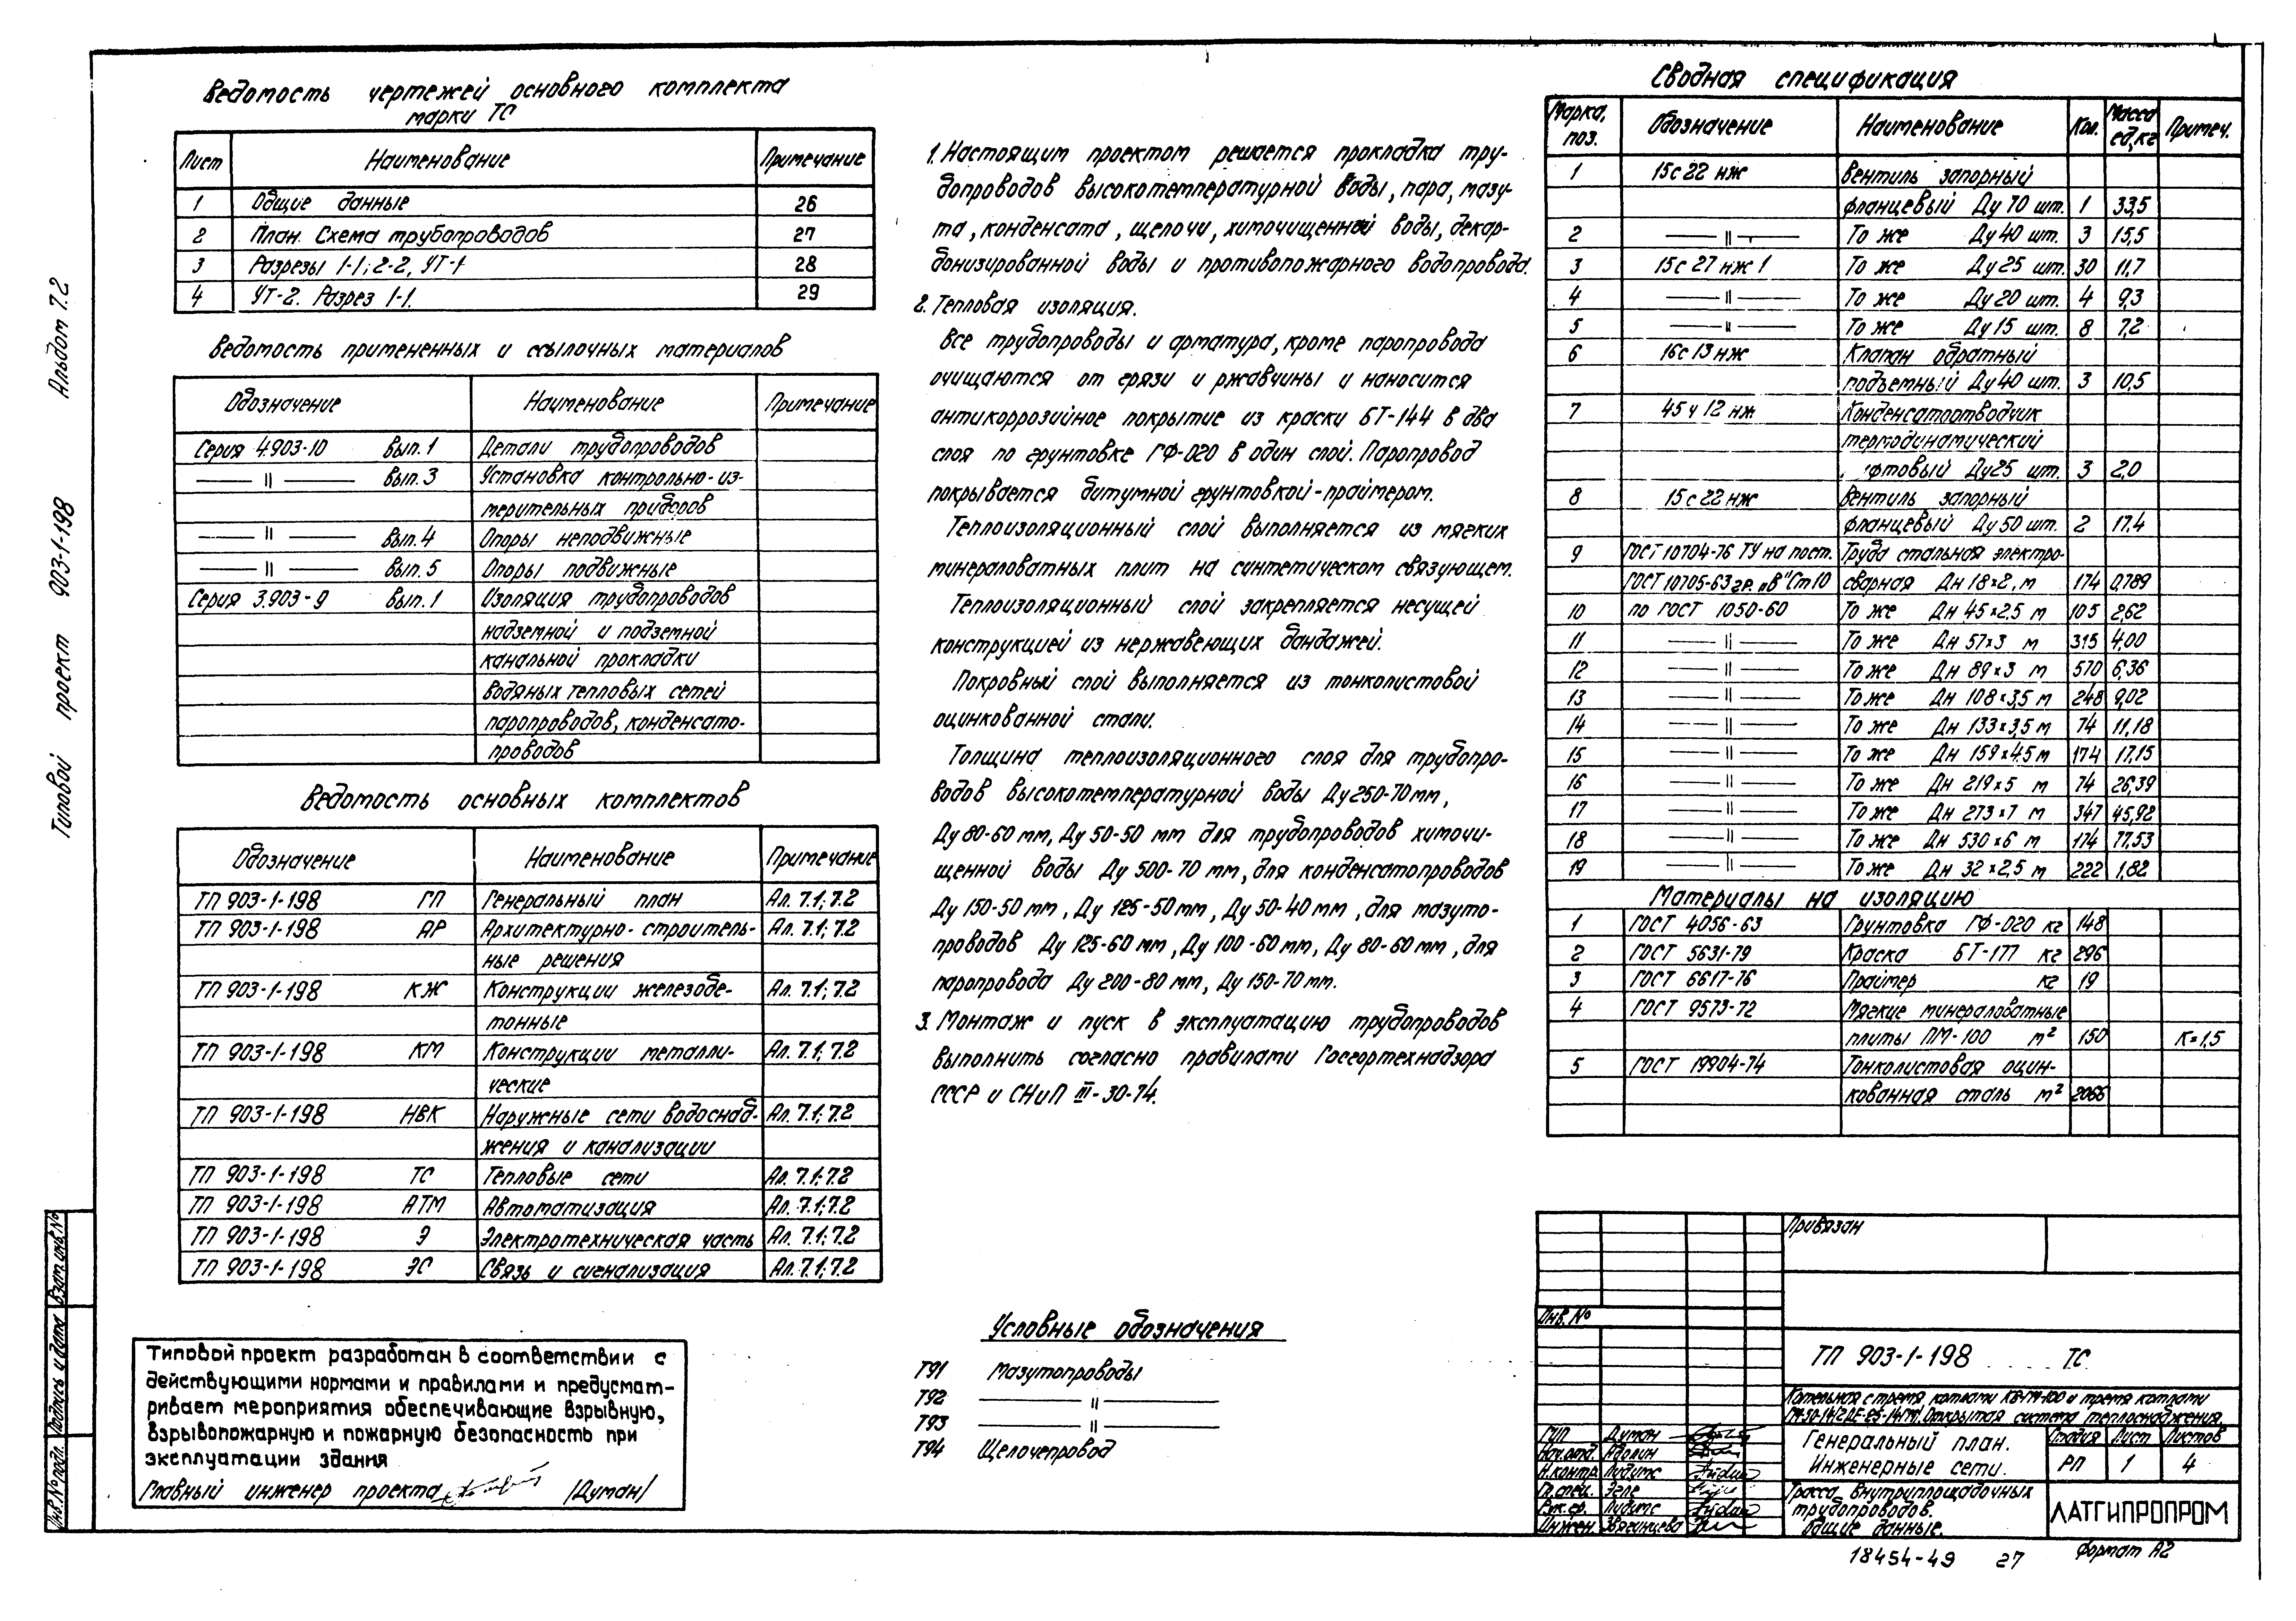 Альбом 7.2
Типовой проект 903-1-198
Взам. инв. №
Подпись и дата
Инв. № подл.
Ведомость чертежей основного комплекта
марки ТС
Лист Наименование Примечание
1 Общие данные 26
2 План. Схема трубопроводов 27
3 Разрезы 1-1; 2-2, УТ-1 28
4 УТ-2. Разрез 1-1. 29
Ведомость примененных и ссылочных материалов
Обозначение Наименование Примечание
Серия 4.903-10 Вып. 1 Детали трубопроводов
—— 〃 —— Вып. 3 Установка контрольно-из-
мерительных приборов
—— 〃 —— Вып. 4 Опоры неподвижные
—— 〃 —— Вып. 5 Опоры подвижные
Серия 3.903-9 Вып. 1 Изоляция трубопроводов
надземной и подземной
канальной прокладки
водяных тепловых сетей
паропроводов, конденсато-
проводов
Ведомость основных комплектов
Обозначение Наименование Примечание
ТП 903-1-198 ГП Генеральный план Ал. 7.1; 7.2
ТП 903-1-198 АР Архитектурно-строитель- Ал. 7.1; 7.2
ные решения
ТП 903-1-198 КЖ Конструкции железобе- Ал. 7.1; 7.2
тонные
ТП 903-1-198 КМ Конструкции металли- Ал. 7.1; 7.2
ческие
ТП 903-1-198 НВК Наружные сети водоснаб- Ал. 7.1; 7.2
жения и канализации
ТП 903-1-198 ТС Тепловые сети Ал. 7.1; 7.2
ТП 903-1-198 АТМ Автоматизация Ал. 7.1; 7.2
ТП 903-1-198 Э Электротехническая часть Ал. 7.1; 7.2
ТП 903-1-198 ЭС Связь и сигнализация Ал. 7.1; 7.2
Типовой проект разработан в соответствии с
действующими нормами и правилами и предусмат-
ривает мероприятия обеспечивающие взрывную,
взрывопожарную и пожарную безопасность при
эксплуатации здания
Главный инженер проекта /Думан/
1. Настоящим проектом решается прокладка тру-
бопроводов высокотемпературной воды, пара, мазу-
та, конденсата, щелочи, химочищенной воды, декар-
бонизированной воды и противопожарного водопровода.
2. Тепловая изоляция.
Все трубопроводы и арматура, кроме паропровода
очищаются от грязи и ржавчины и наносится
антикоррозийное покрытие из краски БТ-144 в два
слоя по грунтовке ГФ-020 в один слой. Паропровод
покрывается битумной грунтовкой-праймером.
Теплоизоляционный слой выполняется из мягких
минераловатных плит на синтетическом связующем.
Теплоизоляционный слой закрепляется несущей
конструкцией из нержавеющих бандажей.
Покровный слой выполняется из тонколистовой
оцинкованной стали.
Толщина теплоизоляционного слоя для трубопро-
водов высокотемпературной воды Ду 250-70 мм,
Ду 80-60 мм, Ду 50-50 мм для трубопроводов химочи-
щенной воды Ду 500-70 мм, для конденсатопроводов
Ду 150-50 мм, Ду 125-50 мм, Ду 50-40 мм, для мазуто-
проводов Ду 125-60 мм, Ду 100-60 мм, Ду 80-60 мм, для
паропровода Ду 200-80 мм, Ду 150-70 мм.
3. Монтаж и пуск в эксплуатацию трубопроводов
выполнить согласно правилами Госгортехнадзора
СССР и СНиП III-30-74.
Условные обозначения
Т91 Мазутопроводы
Т92 —— 〃 ——
Т93 —— 〃 ——
Т94 Щелочепровод
Сводная спецификация
Марка, поз. Обозначение Наименование Кол. Масса ед, кг Примеч.
1 15с 22 нж Вентиль запорный
фланцевый Ду 70 шт. 1 33,5
2 —— 〃 —— То же Ду 40 шт. 3 15,5
3 15с 27 нж 1 То же Ду 25 шт. 30 11,7
4 —— 〃 —— То же Ду 20 шт. 4 9,3
5 —— 〃 —— То же Ду 15 шт. 8 7,2
6 16с 13 нж Клапан обратный
подъемный Ду 40 шт. 3 10,5
7 45ч 12 нж Конденсатоотводчик
термодинамический
фтовый Ду 25 шт. 3 2,0
8 15с 22 нж Вентиль запорный
фланцевый Ду 50 шт. 2 17,4
9 ГОСТ 10704-76 ТУ на пост. Труба стальная электро-
ГОСТ 10705-63 гр. „В" Ст 10 сварная Дн 18×2, м 174 0,789
10 по ГОСТ 1050-60 То же Дн 45×2,5 м 105 2,62
11 —— 〃 —— То же Дн 57×3 м 315 4,00
12 —— 〃 —— То же Дн 89×3 м 570 6,36
13 —— 〃 —— То же Дн 108×3,5 м 248 9,02
14 —— 〃 —— То же Дн 133×3,5 м 74 11,18
15 —— 〃 —— То же Дн 159×4,5 м 174 17,15
16 —— 〃 —— То же Дн 219×5 м 74 26,39
17 —— 〃 —— То же Дн 273×7 м 347 45,92
18 —— 〃 —— То же Дн 530×6 м 174 77,53
19 —— 〃 —— То же Дн 32×2,5 м 222 1,82
Материалы на изоляцию
1 ГОСТ 4056-63 Грунтовка ГФ-020 кг 148
2 ГОСТ 5631-79 Краска БТ-177 кг 296
3 ГОСТ 6617-76 Праймер кг 19
4 ГОСТ 9573-72 Мягкие минераловатные
плиты ПМ-100 м² 150 К=1,5
5 ГОСТ 19904-74 Тонколистовая оцин-
кованная сталь м² 2066
Привязан
Инв. №
ТП 903-1-198 ТС
Котельная с тремя котлами КВ-ГМ-100 и тремя котлами
Открытая система теплоснабжения.
ГИП Думан
Нач. отд. Аболин
Н. контр. Лидумс
Гл. спец. Эгле
Рук. гр. Лидумс
Инжен. Звягинцева
Генеральный план.
Инженерные сети.
Стадия Лист Листов
РП 1 4
Трасса внутриплощадочных
трубопроводов.
Общие данные.
ЛАТГИПРОПРОМ
18454-49 27
Формат А2